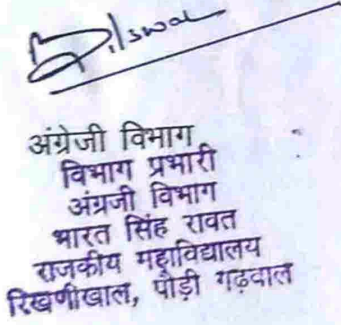 अंग्रेजी विभाग
विभाग प्रभारी
अंग्रजी विभाग
भारत सिंह रावत
राजकीय महाविद्यालय
रिखणीखाल, पौड़ी गढ़वाल